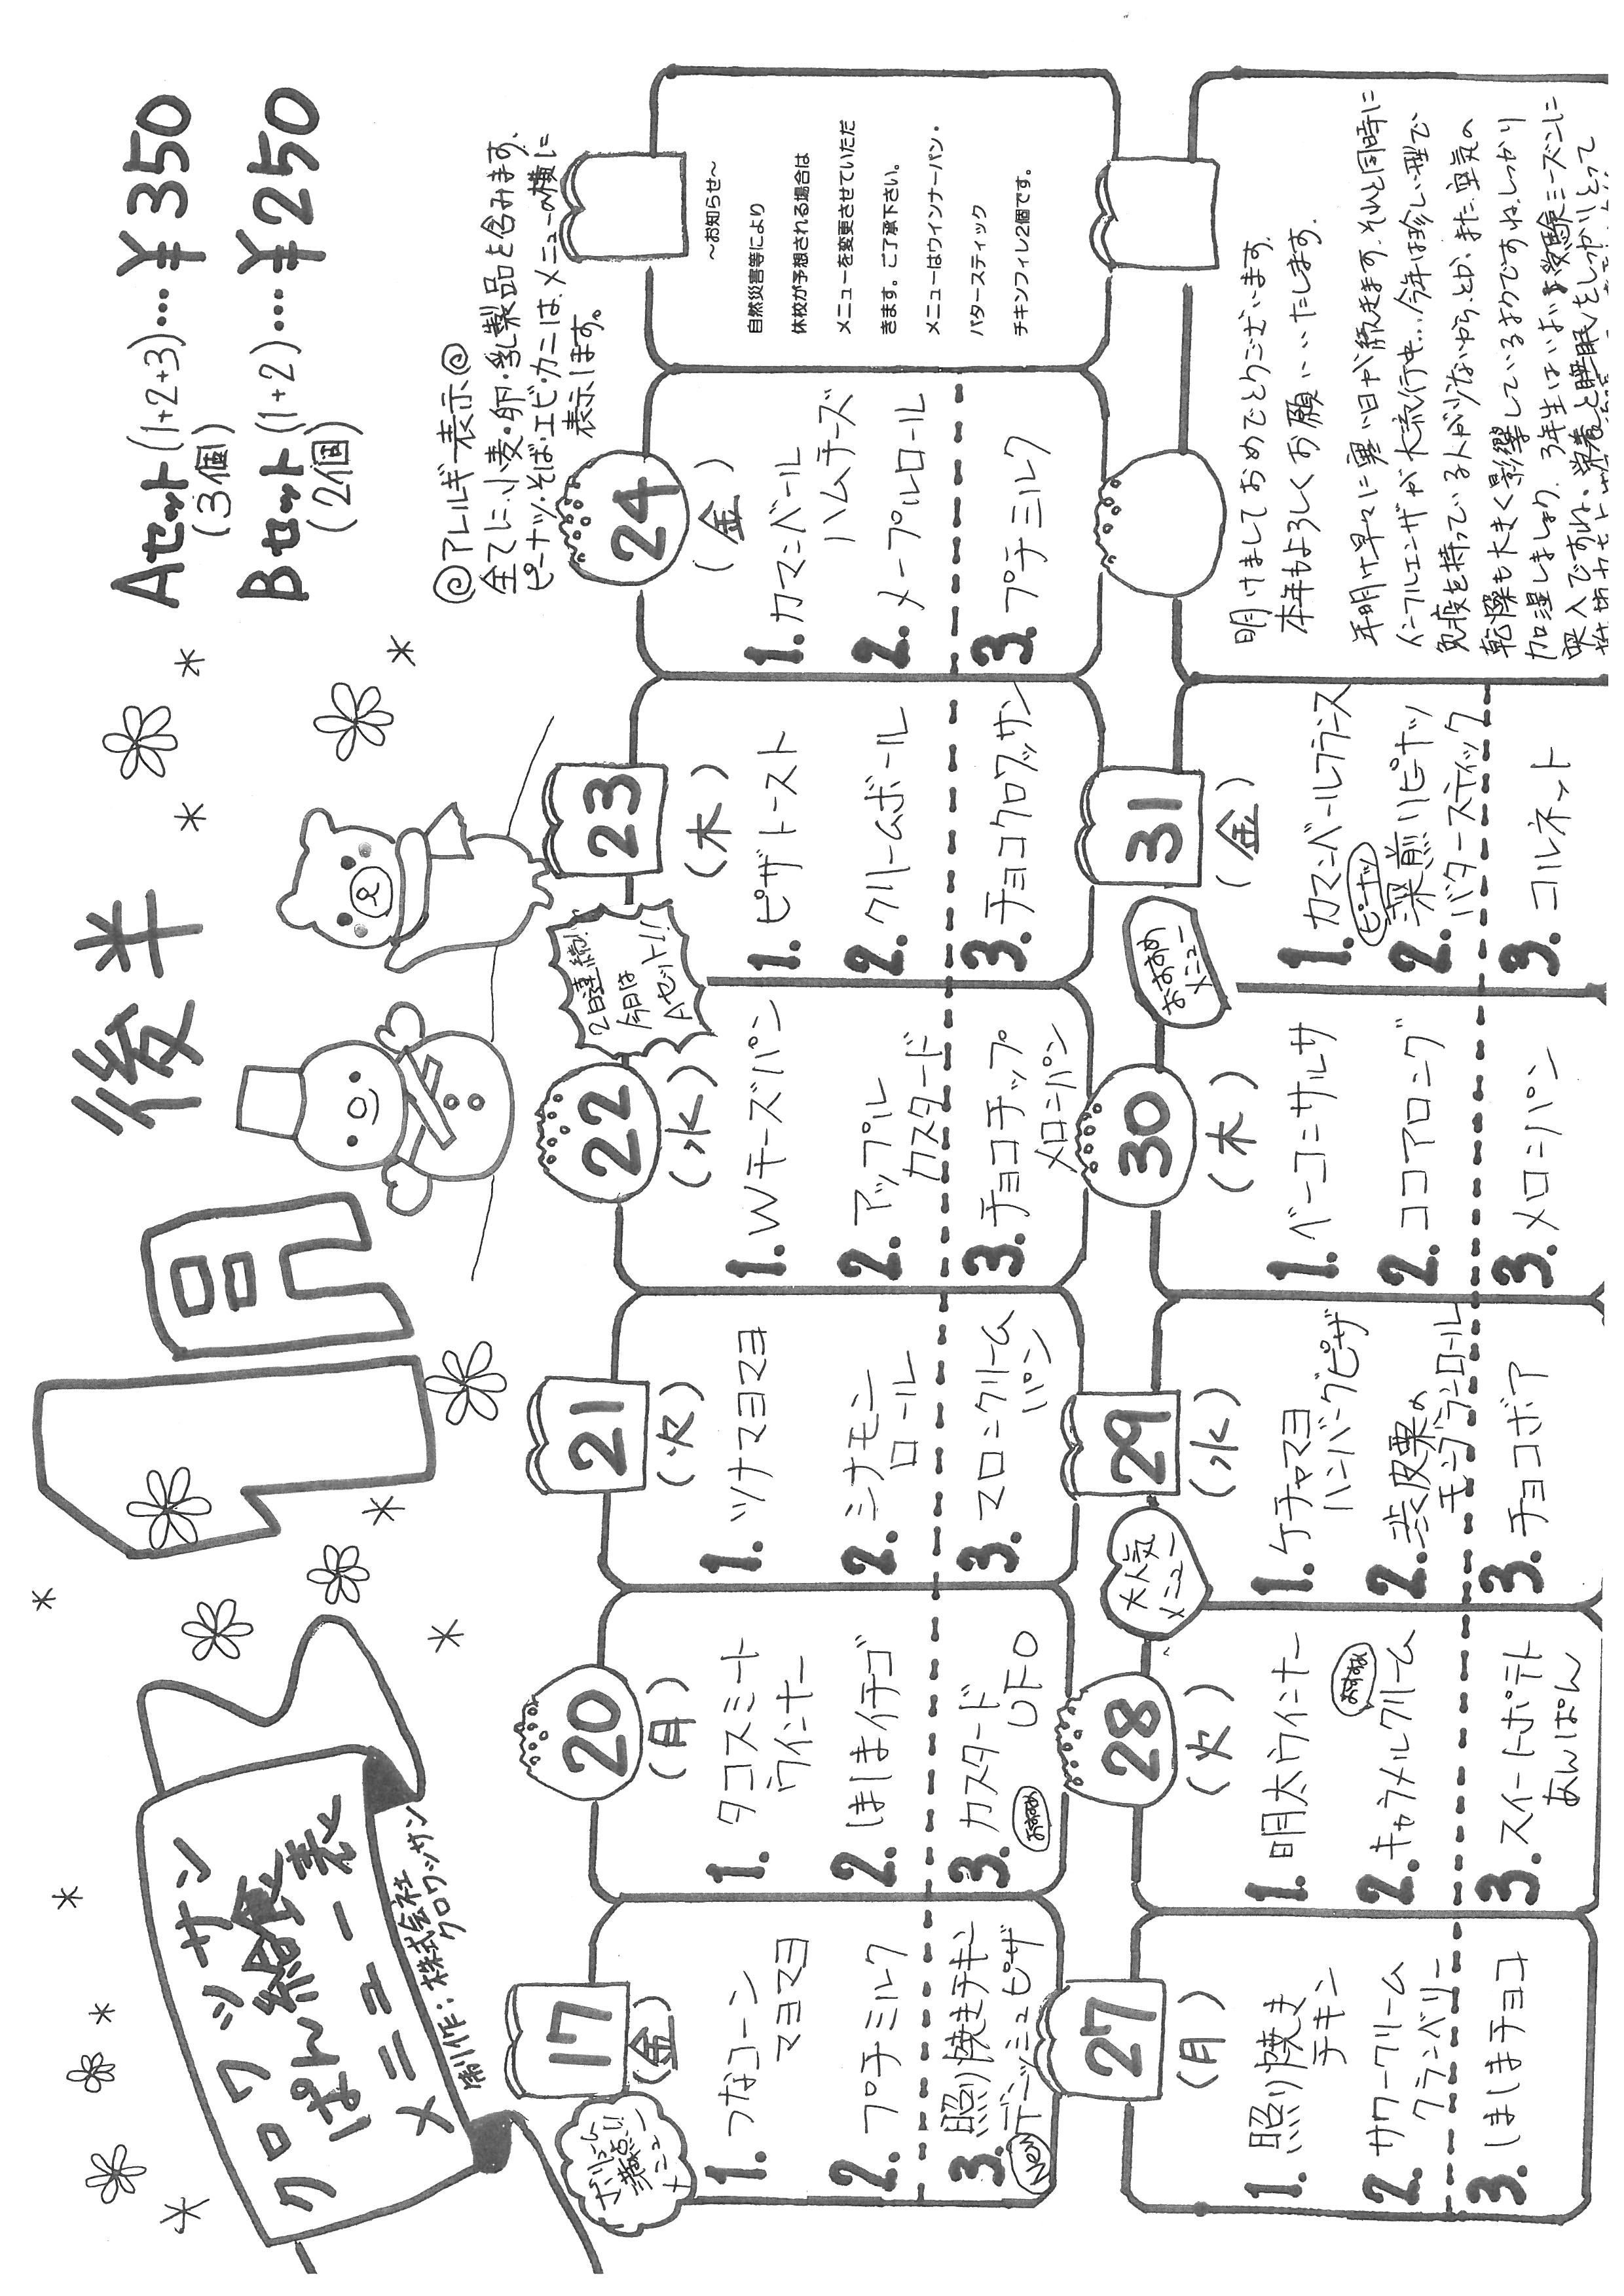 クロワッサン
ぱん給食
メニュー表
制作：株式会社
クロワッサン
1月
後半
Aセット(1+2+3)…¥350
(3個)
Bセット(1+2)…¥250
(2個)
◎アレルギー表示◎
全てに、小麦・卵・乳製品を含みます。
ピーナッツ・そば・エビ・カニは、メニューの横に
表示します。
満点!!
メニュー
17
(金)
1.つなコーン
マヨマヨ
2.プチミルク
3.照り焼きチキン
デニッシュピザ
New
20
(月)
1.タコスミート
ウインナー
2.ほしまイチゴ
3.カスタード
UFO
おすすめ
21
(火)
1.ツナマヨマヨ
2.シナモン
ロール
3.マロンクリーム
パン
22
(水)
1.Wチーズパン
2.アップル
カスタード
3.チョコチップ
メロンパン
2日連続!
今日は
Aセット!!
23
(木)
1.ピザトースト
2.クリームボール
3.チョコクロワッサン
24
(金)
1.カマンベール
ハムチーズ
2.メープルロール
3.プチミルク
～お知らせ～
自然災害等により
休校が予想される場合は
メニューを変更させていただ
きます。ご了承下さい。
メニューはウインナーパン・
バタースティック
チキンフィレ2個です。
27
(月)
1.照り焼き
チキン
2.サワークリーム
クランベリー
3.ほしまチョコ
28
(火)
1.明太ウインナー
2.キャラメルクリーム
おすすめ
3.スイートポテト
あんぱん
大人気
メニュー
29
(水)
1.ケチャマヨ
ハンバーグピザ
2.渋皮栗の
モンブランロール
3.チョコボア
30
(木)
1.ベーコンサルサ
2.ココアロング
3.メロンパン
おすすめ
メニュー
31
(金)
1.カマンベールフランス
ピーナッツ
2.深煎りピーナッツ
バタースティック
3.コルネット
明けましておめでとうございます。
本年もよろしくお願いいたします。
年明け早々に寒い日が続きます。それと同時に
インフルエンザが大流行中…今年は珍しい型で
免疫を持っている人が少ないから、とか。また、空気の
乾燥も大きく影響しているようですね。しっかり
加湿しましょう。3年生はいよいよ受験シーズンに
突入ですね。栄養と睡眠をしっかりとって